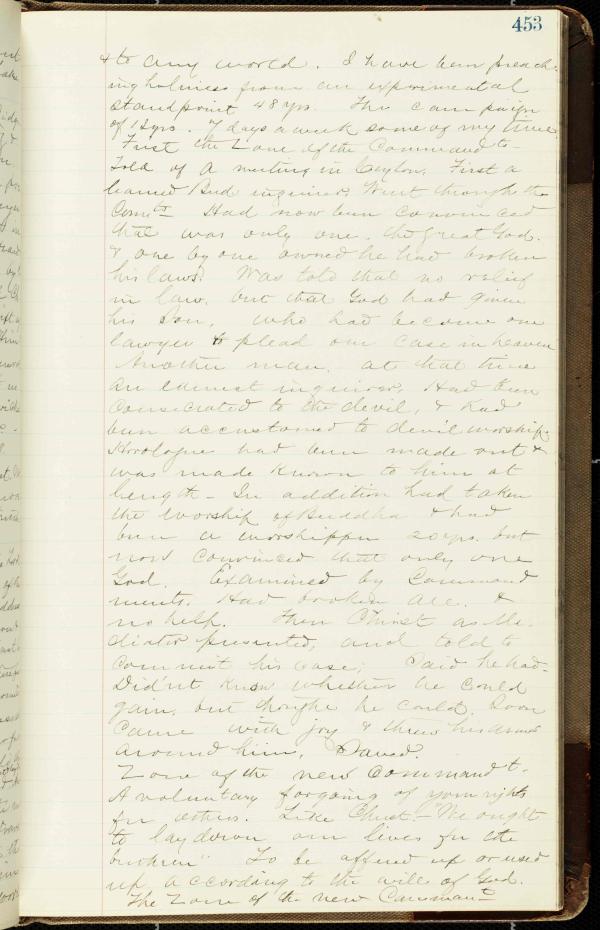 453
& to any world. I have been preach-
ing holiness from an experimental
standpoint 48 yrs. The campaign
of 12 yrs. 7 days a week some of my time
First the Zone of the Command t-
Told of a meeting in Ceylon. First a
learned Bud inquirer. Went through the
Comts Had now been convinced
that was only one. the great God.
& one by one owned he had broken
his laws. Was told that no relief
in law. but that God had given
his Son, who had become our
lawyer to plead our case in heaven
Another man. at that time
an earnest inquirer, Had been
consecrated to the devil, & had
been accustomed to devil worship.
Horologue had been made out &
was made known to him at
length - In addition had taken
the worship of Buddha & had
been a worshipper 20 yrs. but
now convinced that only one
God. Examined by Command
ments. Had broken all. &
no help. Then Christ as Me-
diator presented, and told to
commit his case; Said he had.
Did'nt know whether he could
gain, but thought he could. Soon
came with joy & threw his arms
around him. Saved.
Zone of the new Command t.
A voluntary forgoing of your rights
for others. Like Christ.- "We ought
to lay down our lives for the
brethren" To be offered up or used
up according to the will of God.
The Zone of the new Commant